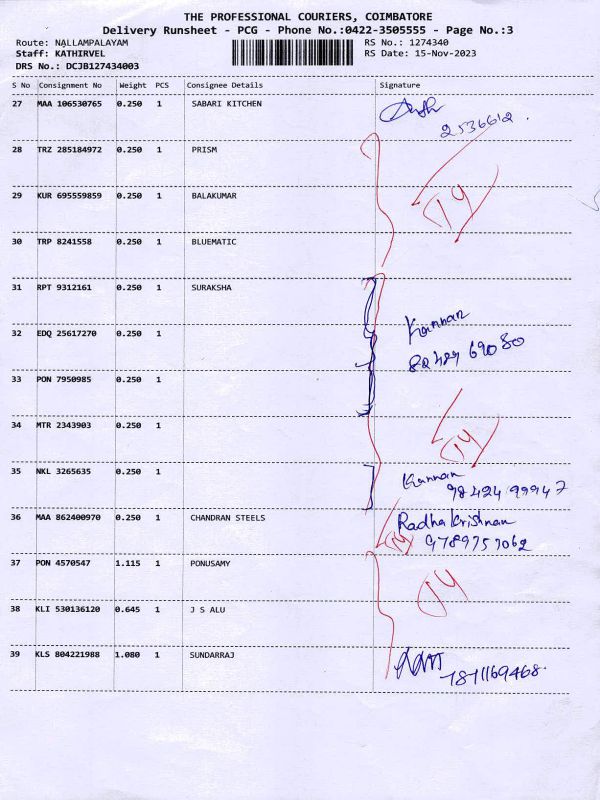 THE PROFESSIONAL COURIERS, COIMBATORE
Delivery Runsheet - PCG - Phone No.:0422-3505555 - Page No.:3
Route: NALLAMPALAYAM RS No.: 1274340
Staff: KATHIRVEL RS Date: 15-Nov-2023
DRS No.: DCJB127434003
S No Consignment No Weight PCS Consignee Details Signature
27 MAA 106530765 0.250 1 SABARI KITCHEN
2536612.
28 TRZ 285184972 0.250 1 PRISM
29 KUR 695559859 0.250 1 BALAKUMAR
30 TRP 8241558 0.250 1 BLUEMATIC
31 RPT 9312161 0.250 1 SURAKSHA
Kannan
32 EDQ 25617270 0.250 1
82489 69080
33 PON 7950985 0.250 1
34 MTR 2343903 0.250 1
35 NKL 3265635 0.250 1 Kannan
98424 99947
36 MAA 862400970 0.250 1 CHANDRAN STEELS Radha Krishnan
9789757062
37 PON 4570547 1.115 1 PONUSAMY
38 KLI 530136120 0.645 1 J S ALU
39 KLS 804221988 1.080 1 SUNDARRAJ
7811169468.